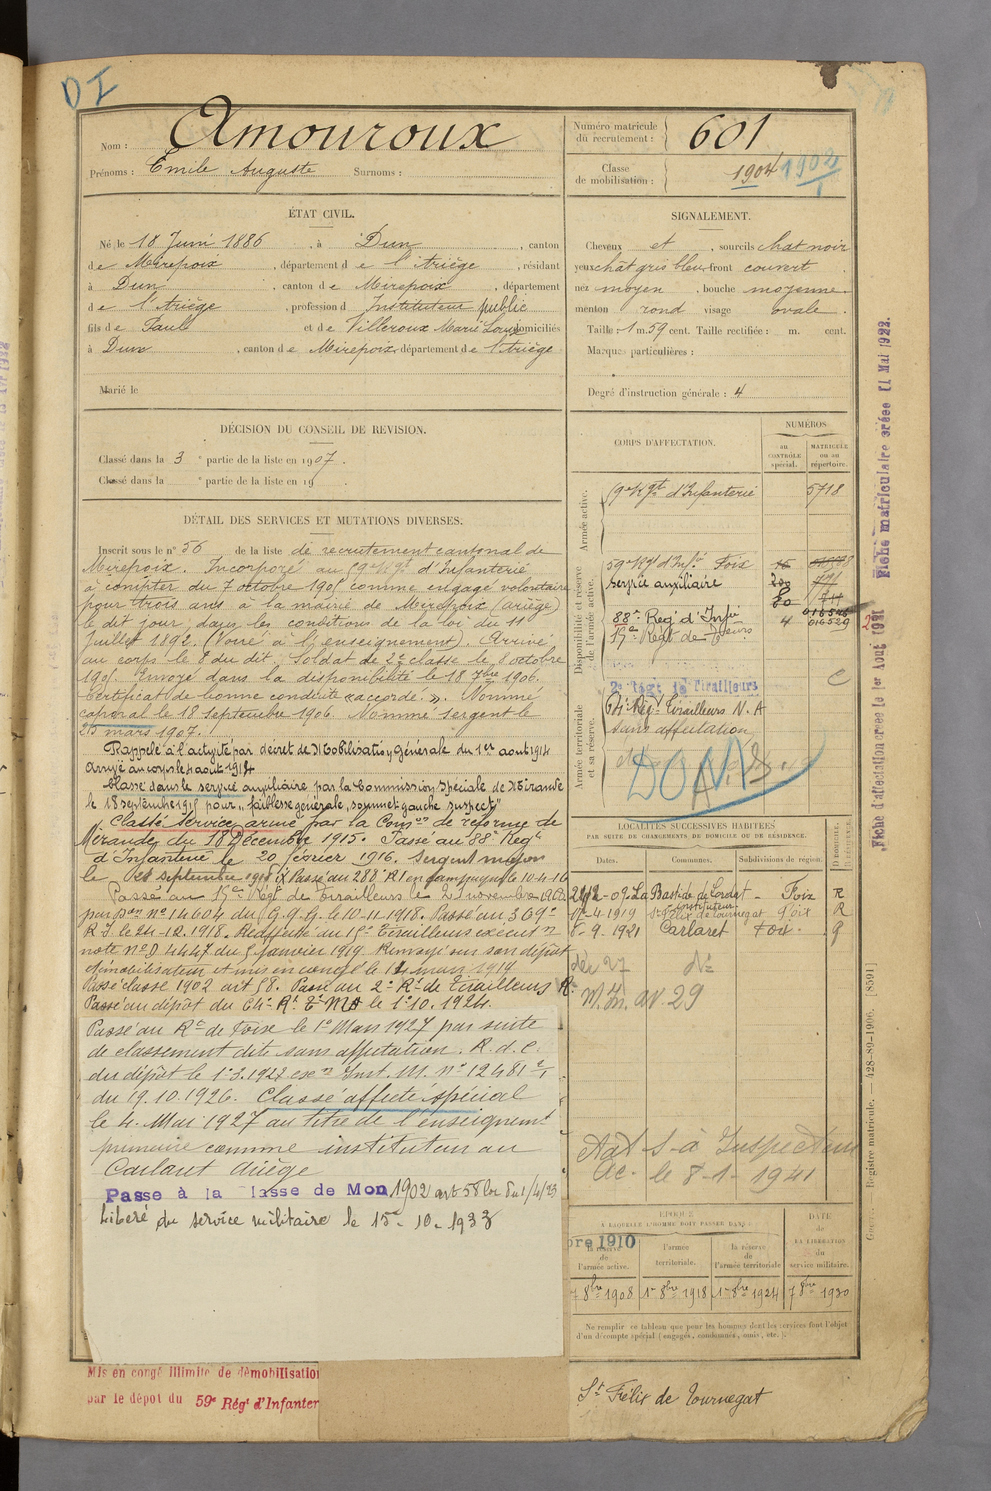 DI
Nom : Amouroux
Prénoms : Emile Auguste Surnoms :
Numéro matricule du recrutement : 601
Classe de mobilisation : 1904 1902
ÉTAT CIVIL.
Né, le 18 Juin 1886, à Dun, canton
de Mirepoix, département de l'Ariège, résidant
à Dun, canton de Mirepoix, département
de l'Ariège, profession d Instituteur public
fils de Paul et de Villeroux Marie Louise domiciliés
à Dun, canton de Mirepoix, département de l'Ariège
Marié le
DÉCISION DU CONSEIL DE REVISION.
Classé dans la 3e partie de la liste en 1907.
Classé dans la e partie de la liste en 19
DÉTAIL DES SERVICES ET MUTATIONS DIVERSES.
Inscrit sous le n° 56 de la liste de recrutement cantonal de
Mirepoix. Incorporé au 59e Régt d'Infanterie
à compter du 7 octobre 1905 comme engagé volontaire
pour trois ans à la mairie de Mirepoix (Ariège)
le dit jour, dans les conditions de la loi du 11
Juillet 1892. (Voué à l'enseignement). Arrivé
au corps le 8 du dit. Soldat de 2e classe le 8 octobre
1905. Envoyé dans la disponibilité le 18 7bre 1906.
Certificat de bonne conduite « accordé ». Nommé
caporal le 18 septembre 1906. Nommé sergent le
25 mars 1907.
Rappelé à l'activité par décret de Mobilisation générale du 1er aout 1914
arrivé au corps le 4 aout 1914
Classé dans le service auxiliaire par la Commission spéciale de Mirande
le 18 septembre 1915 pour "faiblesse générale, sommet gauche suspect"
Classé service armé par la Comon de réforme de
Mirande du 18 Décembre 1915. Passé au 88e Régt
d'Infanterie le 20 février 1916. Sergent major
le septembre Passé au 288e RI en campagne le 10-4-16
Passé au 15e Régt de Tirailleurs le 23 novembre
par Don n° 14604 du G.Q.G. le 10-11-1918. Passé au 369e
R.I. le 24-12.1918. Réaffecté au 15e Tirailleurs exécut n
note n° D 4447 du 5 janvier 1919 Renvoyé sur son dépôt
démobilisateur et mis en congé le 14 mars 1919
Passé classe 1902 art 58. Passé au 2e Rt de Tirailleurs
Passé au dépôt du 64e Rt T. le 1er 10. 1924.
Passé au Rt de Foix le 1er Mars 1927 par suite
de classement dite sans affectation. R.d.c.
du dépôt le 1.3.1927 exon Inst. M. n° 12481 2/1
du 19.10.1926. Classé affecté spécial
le 4 Mai 1927 au titre de l'enseignemt
primaire comme instituteur au
Carlaret Ariège
Passé à la Classe de Mon 1902 art 58 loi du 1/4/23
Libéré du service militaire le 15-10-1933
Mis en congé illimité de démobilisation
par le dépôt du 59e Régt d'Infanter
SIGNALEMENT.
Cheveux et, sourcils chat noir
yeux chât gris bleu front couvert
nez moyen, bouche moyenne
menton rond visage ovale.
Taille 1 m. 59 cent. Taille rectifiée : m. cent.
Marques particulières :
Degré d'instruction générale : 4
CORPS D'AFFECTATION.
NUMÉROS
au CONTRÔLE spécial.
MATRICULE ou au répertoire.
Armée active.
59e Régt d'Infanterie 5718
Disponibilité et réserve de l'armée active.
59e Régt d'Infie Foix
service auxiliaire
88e Reg d'Infie 4 016529
15e Régt de Tirailleurs
Armée territoriale et sa réserve.
2e Régt de Tirailleurs
64e Régt Tirailleurs N.A
sans affectation
LOCALITÉS SUCCESSIVES HABITÉES
PAR SUITE DE CHANGEMENTS DE DOMICILE OU DE RÉSIDENCE.
Dates. Communes. Subdivisions de région. D DOMICILE, R RÉSIDENCE.
La Bastide de Lordat - Foix R
instituteur
4-1919 St Félix de Tournegat Foix R
8-9-1921 Carlaret Foix
déc 27 N°
M. In. av. 29
Aff S-à Inspection
Ac. le 8-1-1941
ÉPOQUE À LAQUELLE L'HOMME DOIT PASSER DANS
DATE de LA LIBÉRATION du service militaire.
bre 1910
la réserve de l'armée active.
l'armée territoriale.
la réserve de l'armée territoriale
7 8bre 1908 1er 8bre 1918 1er 8bre 1924 7 8bre 1930
Ne remplir ce tableau que pour les hommes dont les services font l'objet
d'un décompte spécial (engagés, condamnés, omis, etc.).
St Félix de Tournegat
Fiche d'affectation créée le 1er Aout 1921
Fiche matriculaire créée 11 Mai 1922.
Registre matricule. — 428-89-1906. [8591]